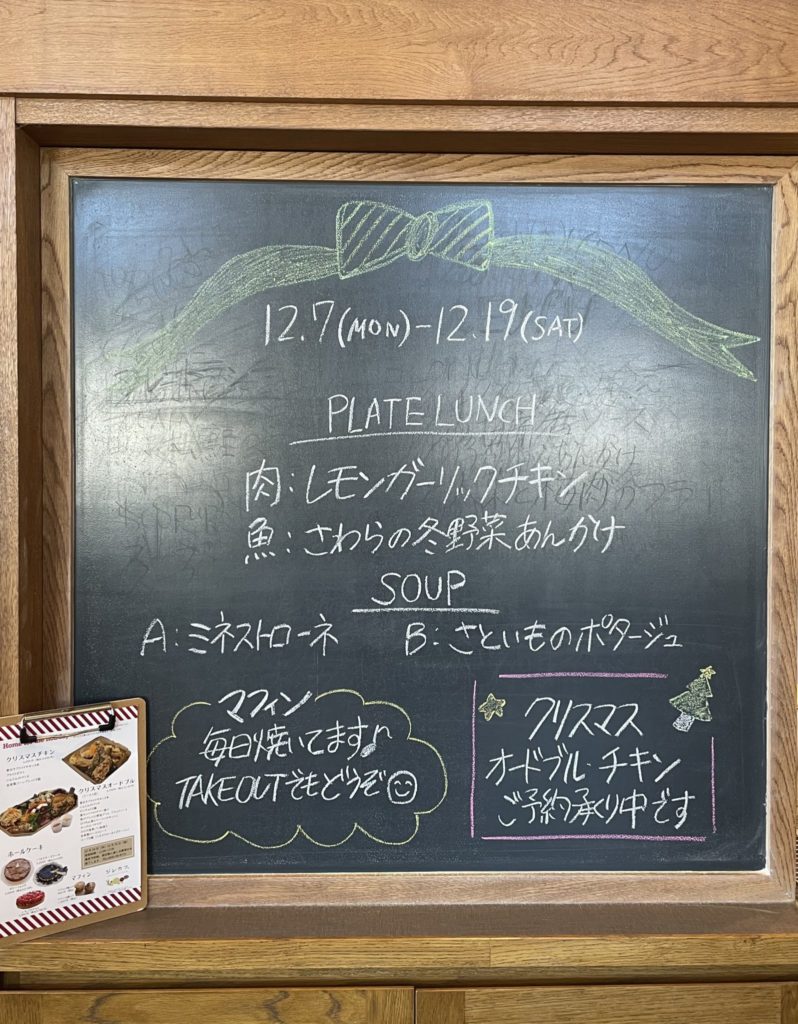 12.7(MON)-12.19(SAT)
PLATE LUNCH
肉:レモンガーリックチキン
魚:さわらの冬野菜あんかけ
SOUP
A:ミネストローネ
B:さといものポタージュ
マフィン
毎日焼いてます♪
TAKEOUTでもどうぞ☺
クリスマス
オードブル・チキン
ご予約承り中です
クリスマスチキン
クリスマスオードブル
ホールケーキ
マフィン